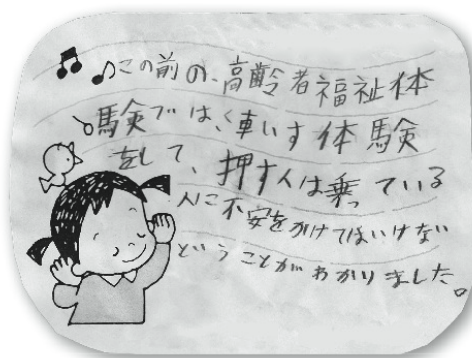 この前の、高齢者福祉体
験では、車いす体験
をして、押す人は乗っている
人に不安をかけてはいけない
ということがわかりました。